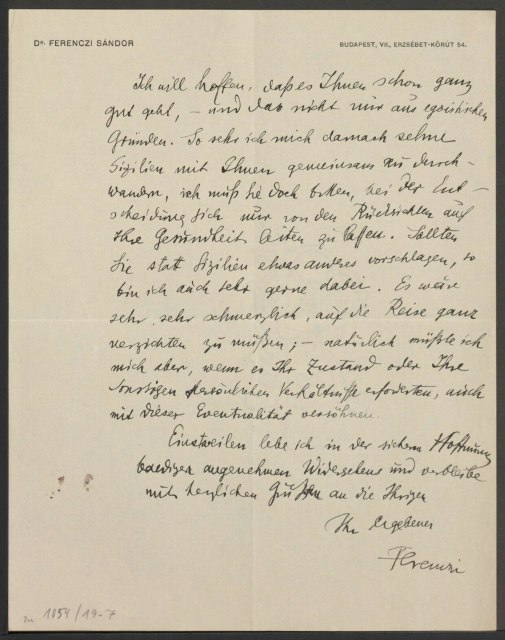 Dr. FERENCZI SÁNDOR
BUDAPEST, VII., ERZSÉBET-KÖRÚT 54.
Ich will hoffen, daß es Ihnen schon ganz
gut geht, – und das nicht nur aus egoistischen
Gründen. So sehr ich mich darnach sehne
Sizilien mit Ihnen gemeinsam zu durch-
wandern, ich muß Sie doch bitten, bei der Ent-
scheidung sich nur von den Rücksichten auf
Ihre Gesundheit leiten zu lassen. Sollten
Sie statt Sizilien etwas anderes vorschlagen, so
bin ich auch sehr gerne dabei. Es wäre
sehr, sehr schmerzlich, auf die Reise ganz
verzichten zu müßen; – natürlich müßte ich
mich aber, wenn es Ihr Zustand oder Ihre
sonstigen persönlichen Verhältniße erforderten, auch
mit dieser Eventualität versöhnen.
Einstweilen lebe ich in der sichern Hoffnung
baldigen angenehmen Wiedersehens und verbleibe
mit herzlichen Grüßen an die Ihrigen
Ihr ergebener
Ferenczi
1054/19-7